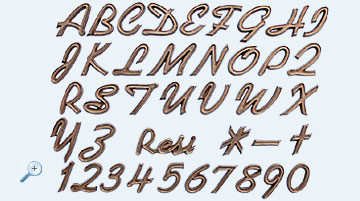 ABCDEFGHI
JKLMNOPQ
RSTUVWX
YZ Resi * - +
1234567890